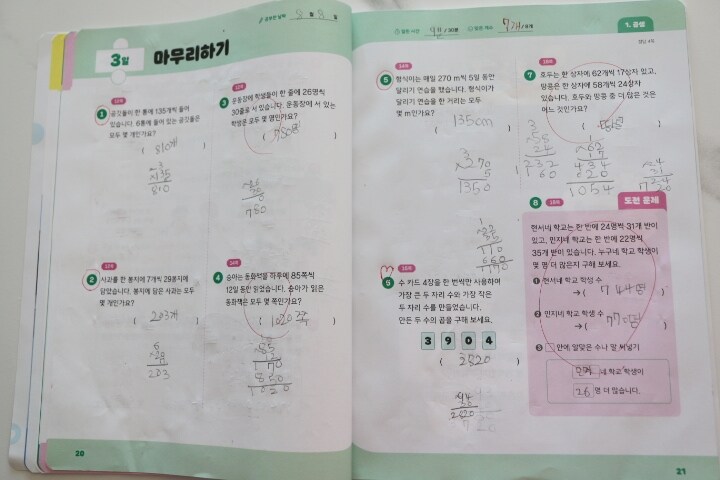 공부한 날짜 8월 8일
3일 마무리하기
1 공깃돌이 한 통에 135개씩 들어
있습니다. 6통에 들어 있는 공깃돌은
모두 몇 개인가요?
( 810개 )
3
×135
810
2 사과를 한 봉지에 7개씩 29봉지에
담았습니다. 봉지에 담은 사과는 모두
몇 개인가요?
( 203개 )
203
3 운동장에 학생들이 한 줄에 26명씩
30줄로 서 있습니다. 운동장에 서 있는
학생은 모두 몇 명인가요?
( 780명 )
780
4 승아는 동화책을 하루에 85쪽씩
12일 동안 읽었습니다. 승아가 읽은
동화책은 모두 몇 쪽인가요?
( 1020쪽 )
×85
12
170
850
1020
20
맞은 개수 7개 /8개
1. 곱셈
정답 4쪽
5 형식이는 매일 270 m씩 5일 동안
달리기 연습을 했습니다. 형식이가
달리기 연습을 한 거리는 모두
몇 m인가요?
( 135cm )
3
×270
5
1350
6 수 카드 4장을 한 번씩만 사용하여
가장 큰 두 자리 수와 가장 작은
두 자리 수를 만들었습니다.
만든 두 수의 곱을 구해 보세요.
3 9 0 4
( 2820 )
94
2820
7 호두는 한 상자에 62개씩 17상자 있고,
땅콩은 한 상자에 58개씩 24상자
있습니다. 호두와 땅콩 중 더 많은 것은
어느 것인가요?
58
24
232
×62
17
434
620
1054
8 도전 문제
현서네 학교는 한 반에 24명씩 31개 반이
있고, 민지네 학교는 한 반에 22명씩
35개 반이 있습니다. 누구네 학교 학생이
몇 명 더 많은지 구해 보세요.
1 현서네 학교 학생 수
→ ( 744명 )
2 민지네 학교 학생 수
→ ( 770명 )
3 □ 안에 알맞은 수나 말 써넣기
민지 네 학교 학생이
26 명 더 많습니다.
21